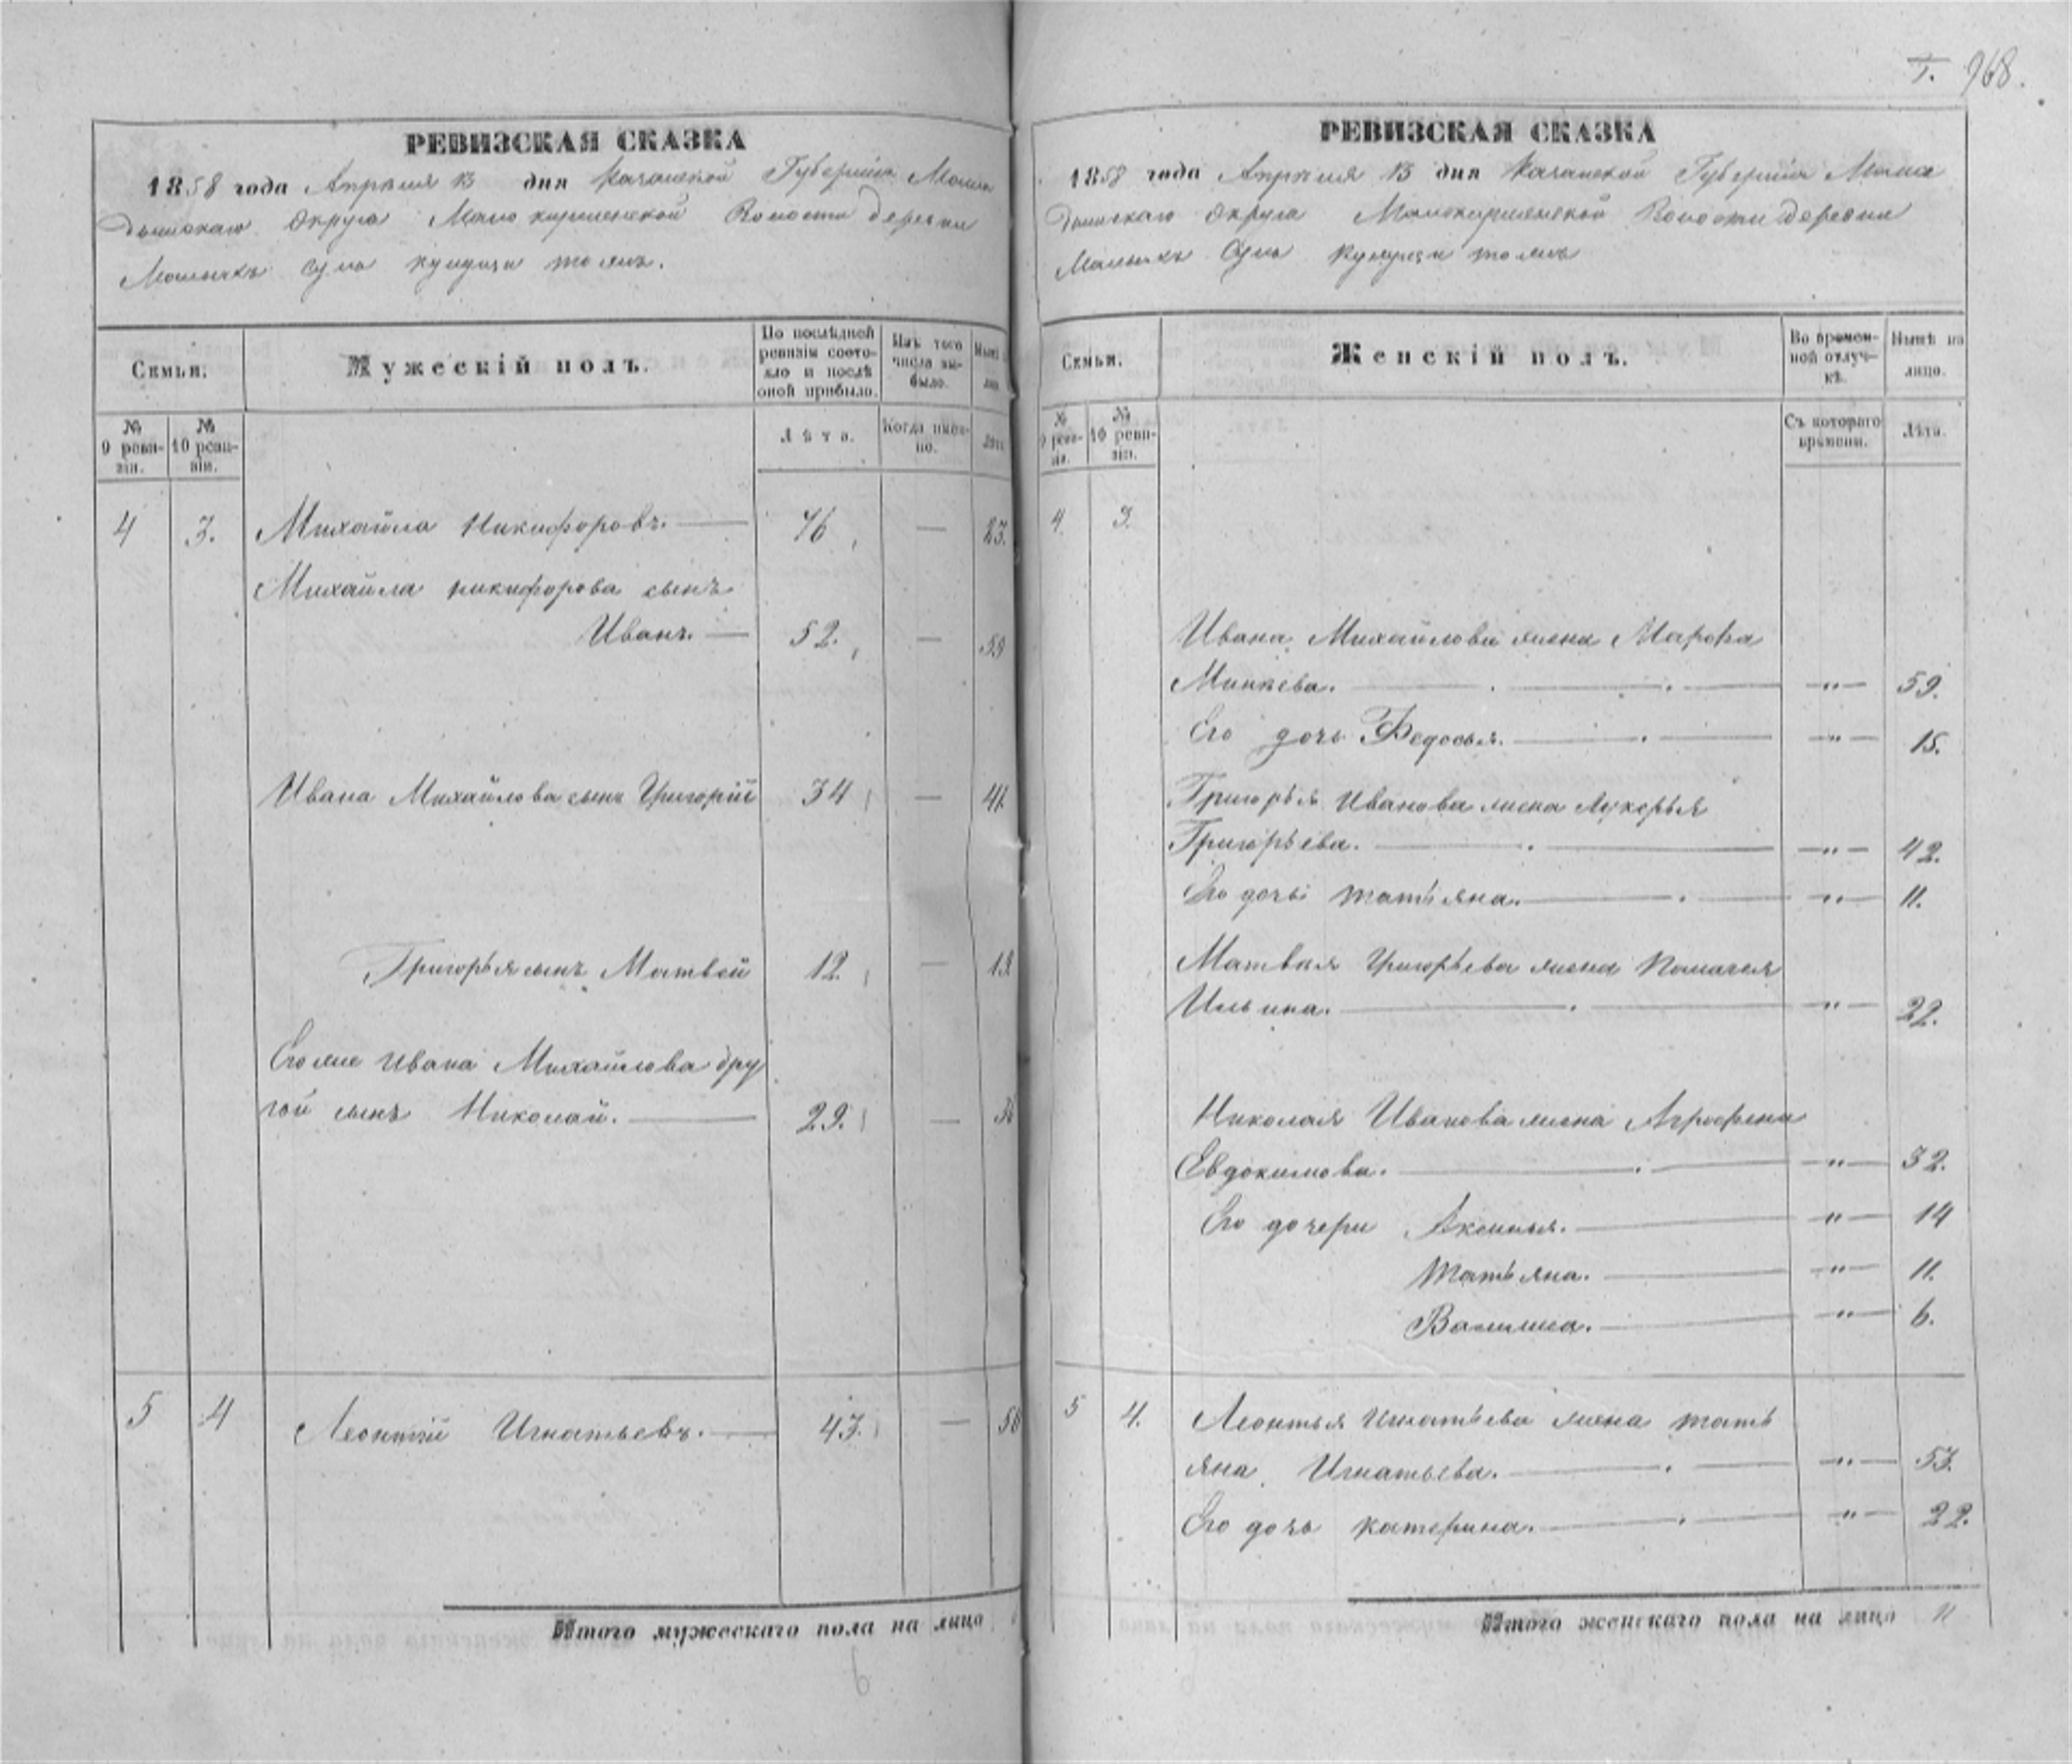 Т. 968.
РЕВИЗСКАЯ СКАЗКА
1858 года Апрѣля 13 дня Казанской Губерніи Мама
дышскаго Округа Мало кирменской Волости деревни
Малыхъ Сунь
Семьи.
Мужескій полъ.
По послѣдней ревизіи состояло и послѣ оной прибыло.
Изъ того числа выбыло.
Нынѣ на лицо.
№ 9 ревизіи.
№ 10 ревизіи.
Лѣта.
Когда именно.
Лѣта.
4 3. Михайла Никифоровъ. — 76 — 23.
Михайла никифорова сынъ
Иванъ. — 52. — 59
Ивана Михайлова сынъ Григорій 34 — 41.
Григорья сынъ Матвей 12. — 19
Его же Ивана Михайлова дру
гой сынъ Николай. — 29. — 36
5 4 Леонтій Игнатьевъ. — 43. — 50
Итого мужескаго пола на лицо
6
РЕВИЗСКАЯ СКАЗКА
1858 года Апрѣля 13 дня Казанской Губерніи Мама
дышскаго Округа Малокирменской Волости деревни
Малыхъ Сунь
Семьи.
Женскій полъ.
Во временной отлучкѣ.
Нынѣ на лицо.
№ 9 ревизіи.
№ 10 ревизіи.
Съ котораго времени.
Лѣта.
4. 3.
Ивана Михайлова жена Марфа
Минеева. — " — 59.
Его дочь Федосья. — " — 15.
Григорья Иванова жена Лукерья
Григорьева. — " — 42.
Его дочь татьяна. — " — 11.
Матвея Григорьева жена Палагея
Ильина. — " — 22.
Николая Иванова жена Агрофена
Евдокимова. — " — 32.
Его дочери Аксинья. — " — 14
татьяна. — " — 11.
Василиса. — " — 6.
5 4. Леонтья Игнатьева жена тать
яна Игнатьева. — " — 53.
Его дочь катерина. — " — 22.
Итого женскаго пола на лицо 11